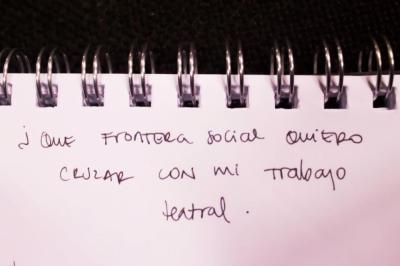 ¿ QUE FRONTERA social QUIERO
CRUZAR CON MI Trabajo
teatral.